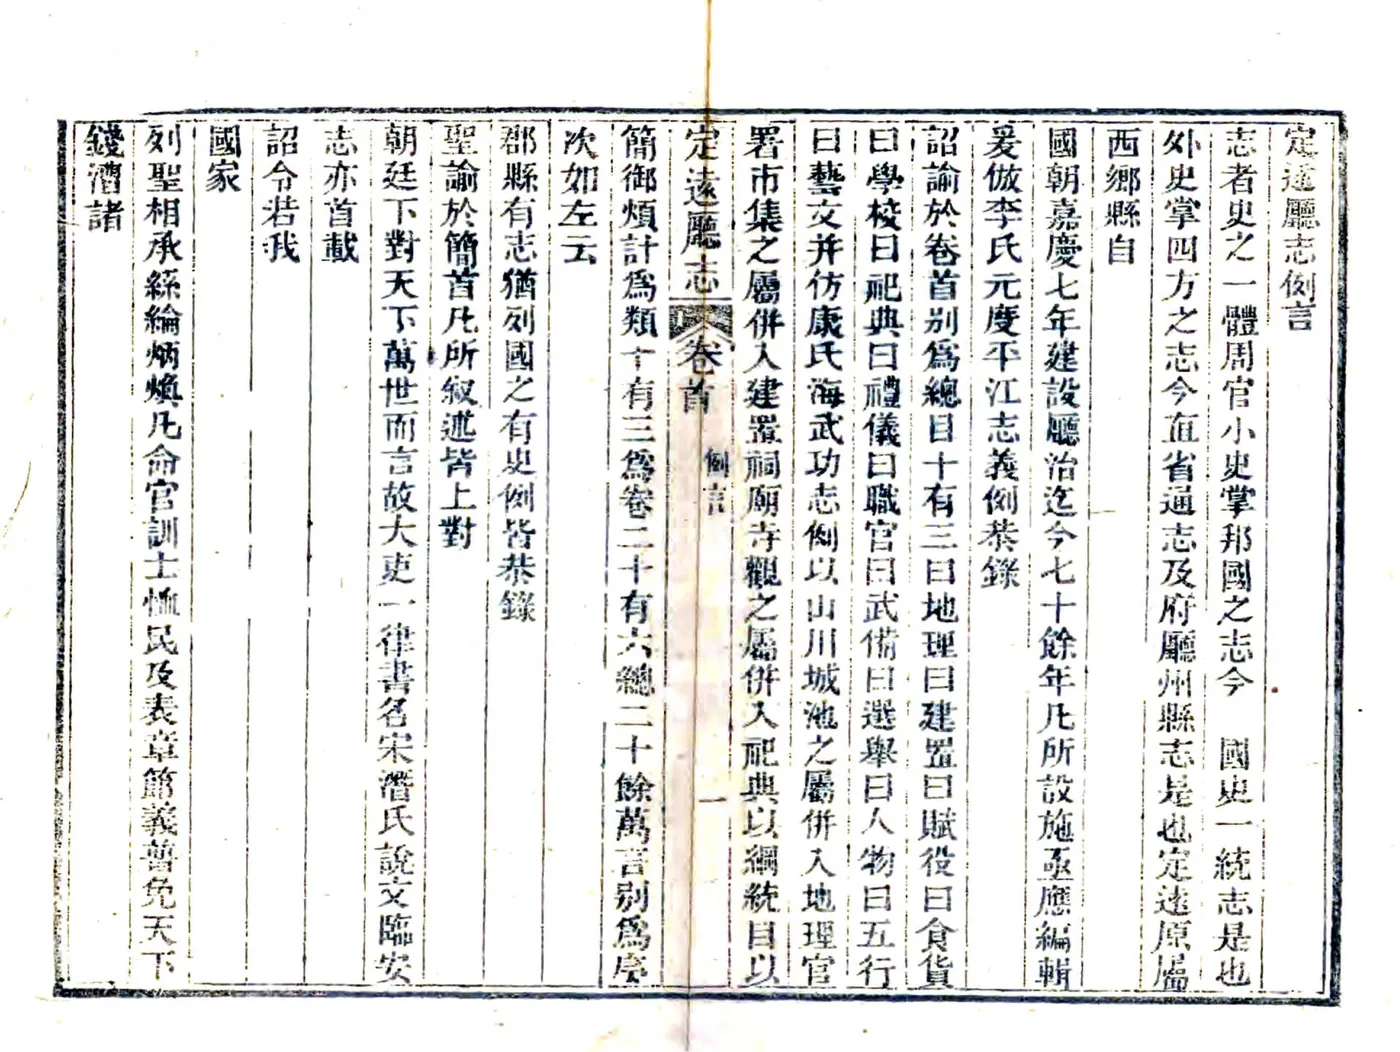 定遠廳志例言
志者史之一體周官小史掌邦國之志今　國史一統志是也
外史掌四方之志今直省通志及府廳州縣志是也定遠原屬
西鄉縣自
國朝嘉慶七年建設廳治迄今七十餘年凡所設施亟應編輯
爰倣李氏元度平江志義例恭錄
詔諭於卷首別為總目十有三曰地理曰建置曰賦役曰食貨
曰學校曰祀典曰禮儀曰職官曰武備曰選舉曰人物曰五行
曰藝文并仿康氏海武功志例以山川城池之屬併入地理官
署市集之屬併入建置祠廟寺觀之屬併入祀典以綱統目以
定遠廳志 卷首 例言 一
簡御煩計爲類十有三爲卷二十有六總二十餘萬言別爲序
次如左云
郡縣有志猶列國之有史例皆恭錄
聖諭於簡首凡所叙述皆上對
朝廷下對天下萬世而言故大吏一律書名宋潛氏說文臨安
志亦首載
詔令若我
國家
列聖相承絲綸炳煥凡命官訓士恤民及表章節義蠲免天下
錢漕諸